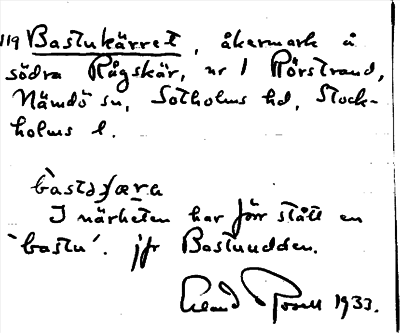 119 Bastukärret, åkermark å
södra Rågskär, nr 1 Rörstrand,
Nämdö sn, Sotholms hd, Stock-
holms l.
I närheten har förr stått en
'bastu'. jfr Bastuudden.
Erland 1933.